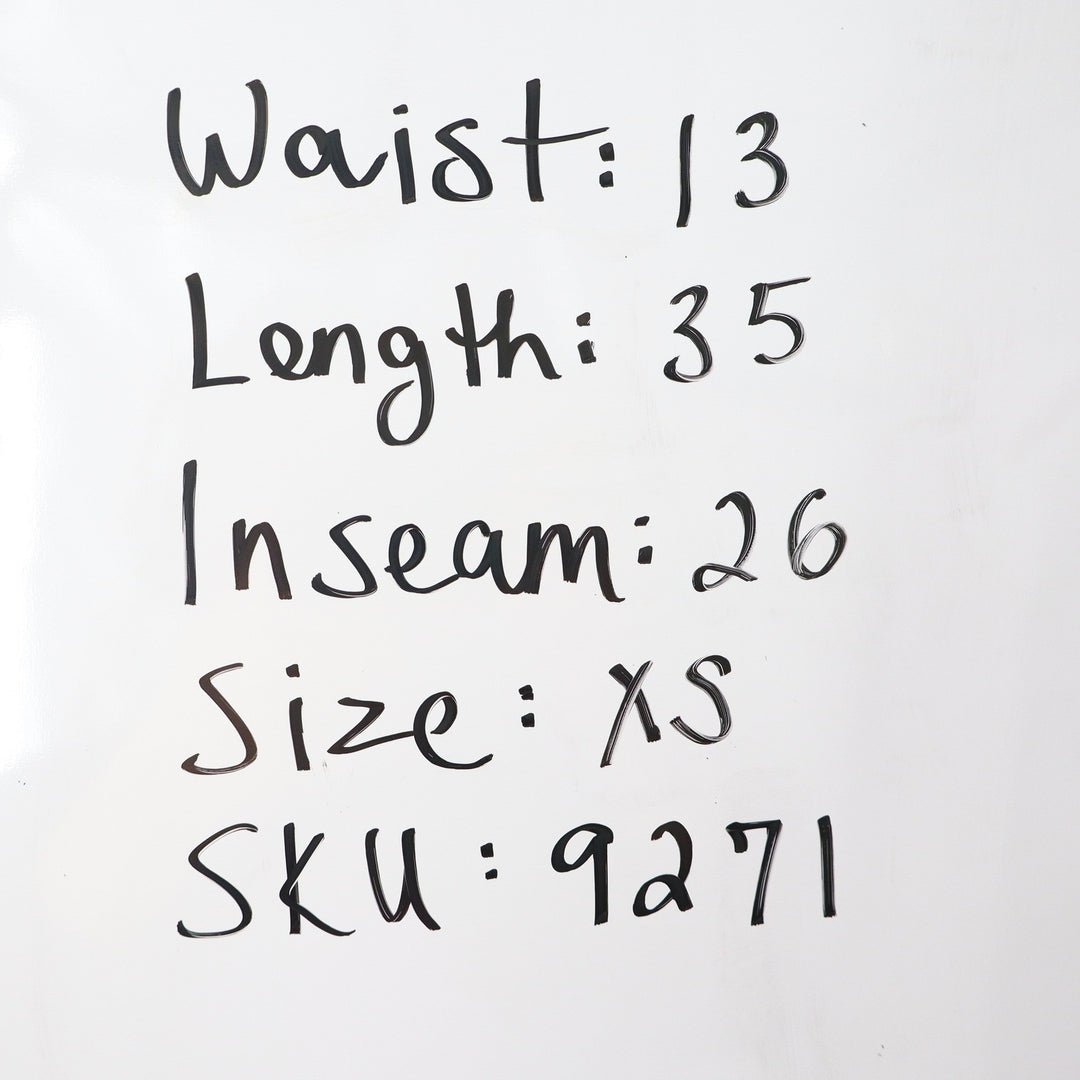 Waist: 13
Length: 35
Inseam: 26
Size: XS
SKU: 9271